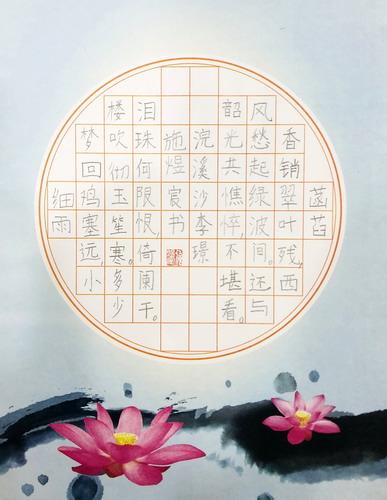 浣溪沙李璟
菡萏
香销翠叶残,西
风愁起绿波间。还与
韶光共憔悴,不堪看。
细雨
梦回鸡塞远,小
楼吹彻玉笙寒。多少
泪珠何限恨,倚阑干。
施煜宸书